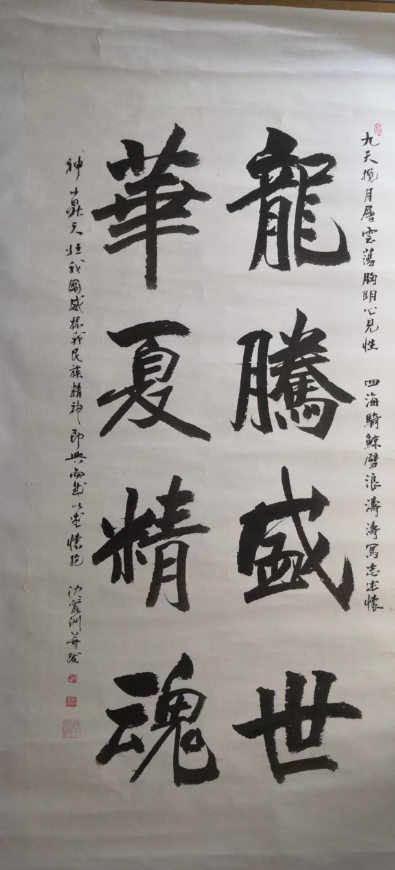 九天攬月層雲蕩胸明心見性 四海騎鯨劈浪濤濤寫志
龍騰盛世
華夏精魂
神 天 壯我國威振我民族精神即興而成以 懷抱